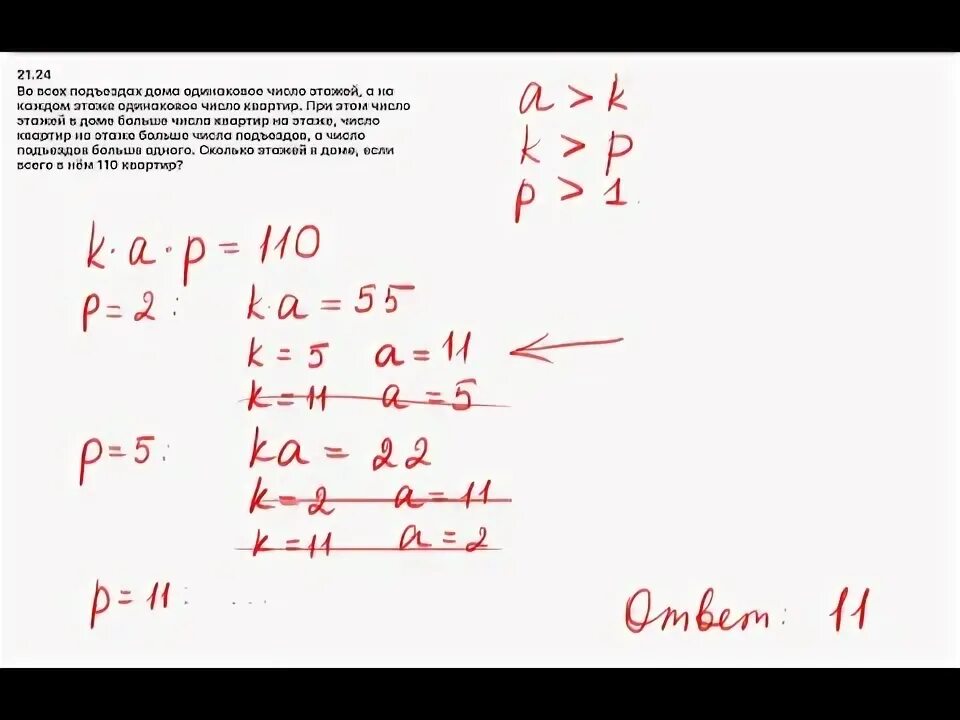 21.24
Во всех подъездах дома одинаковое число этажей, а на
каждом этаже одинаковое число квартир. При этом число
этажей в доме больше числа квартир на этаже, число
квартир на этаже больше числа подъездов, а число
подъездов больше одного. Сколько этажей в доме, если
всего в нём 110 квартир?
a > k
k > p
p > 1
k · a · p = 110
p = 2 : k · a = 55
k = 5 a = 11
k = 11 a = 5
p = 5 : ka = 22
k = 2 a = 11
k = 11 a = 2
p = 11 : ...
Ответ: 11